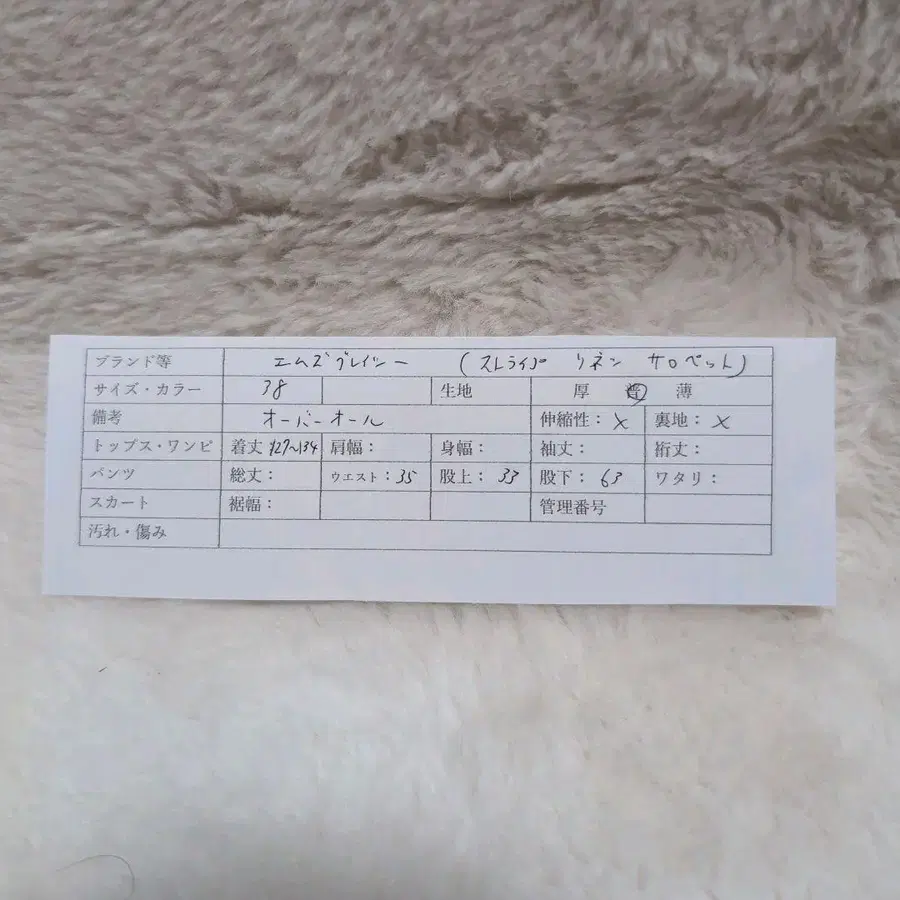 ブランド等 エムズグレイシー (ストライプ リネン サロペット)
サイズ・カラー 38 生地 厚 普 薄
備考 オーバーオール 伸縮性：× 裏地：×
トップス・ワンピ 着丈：127〜134 肩幅： 身幅： 袖丈： 裄丈：
パンツ 総丈： ウエスト：35 股上：33 股下：63 ワタリ：
スカート 裾幅： 管理番号
汚れ・傷み